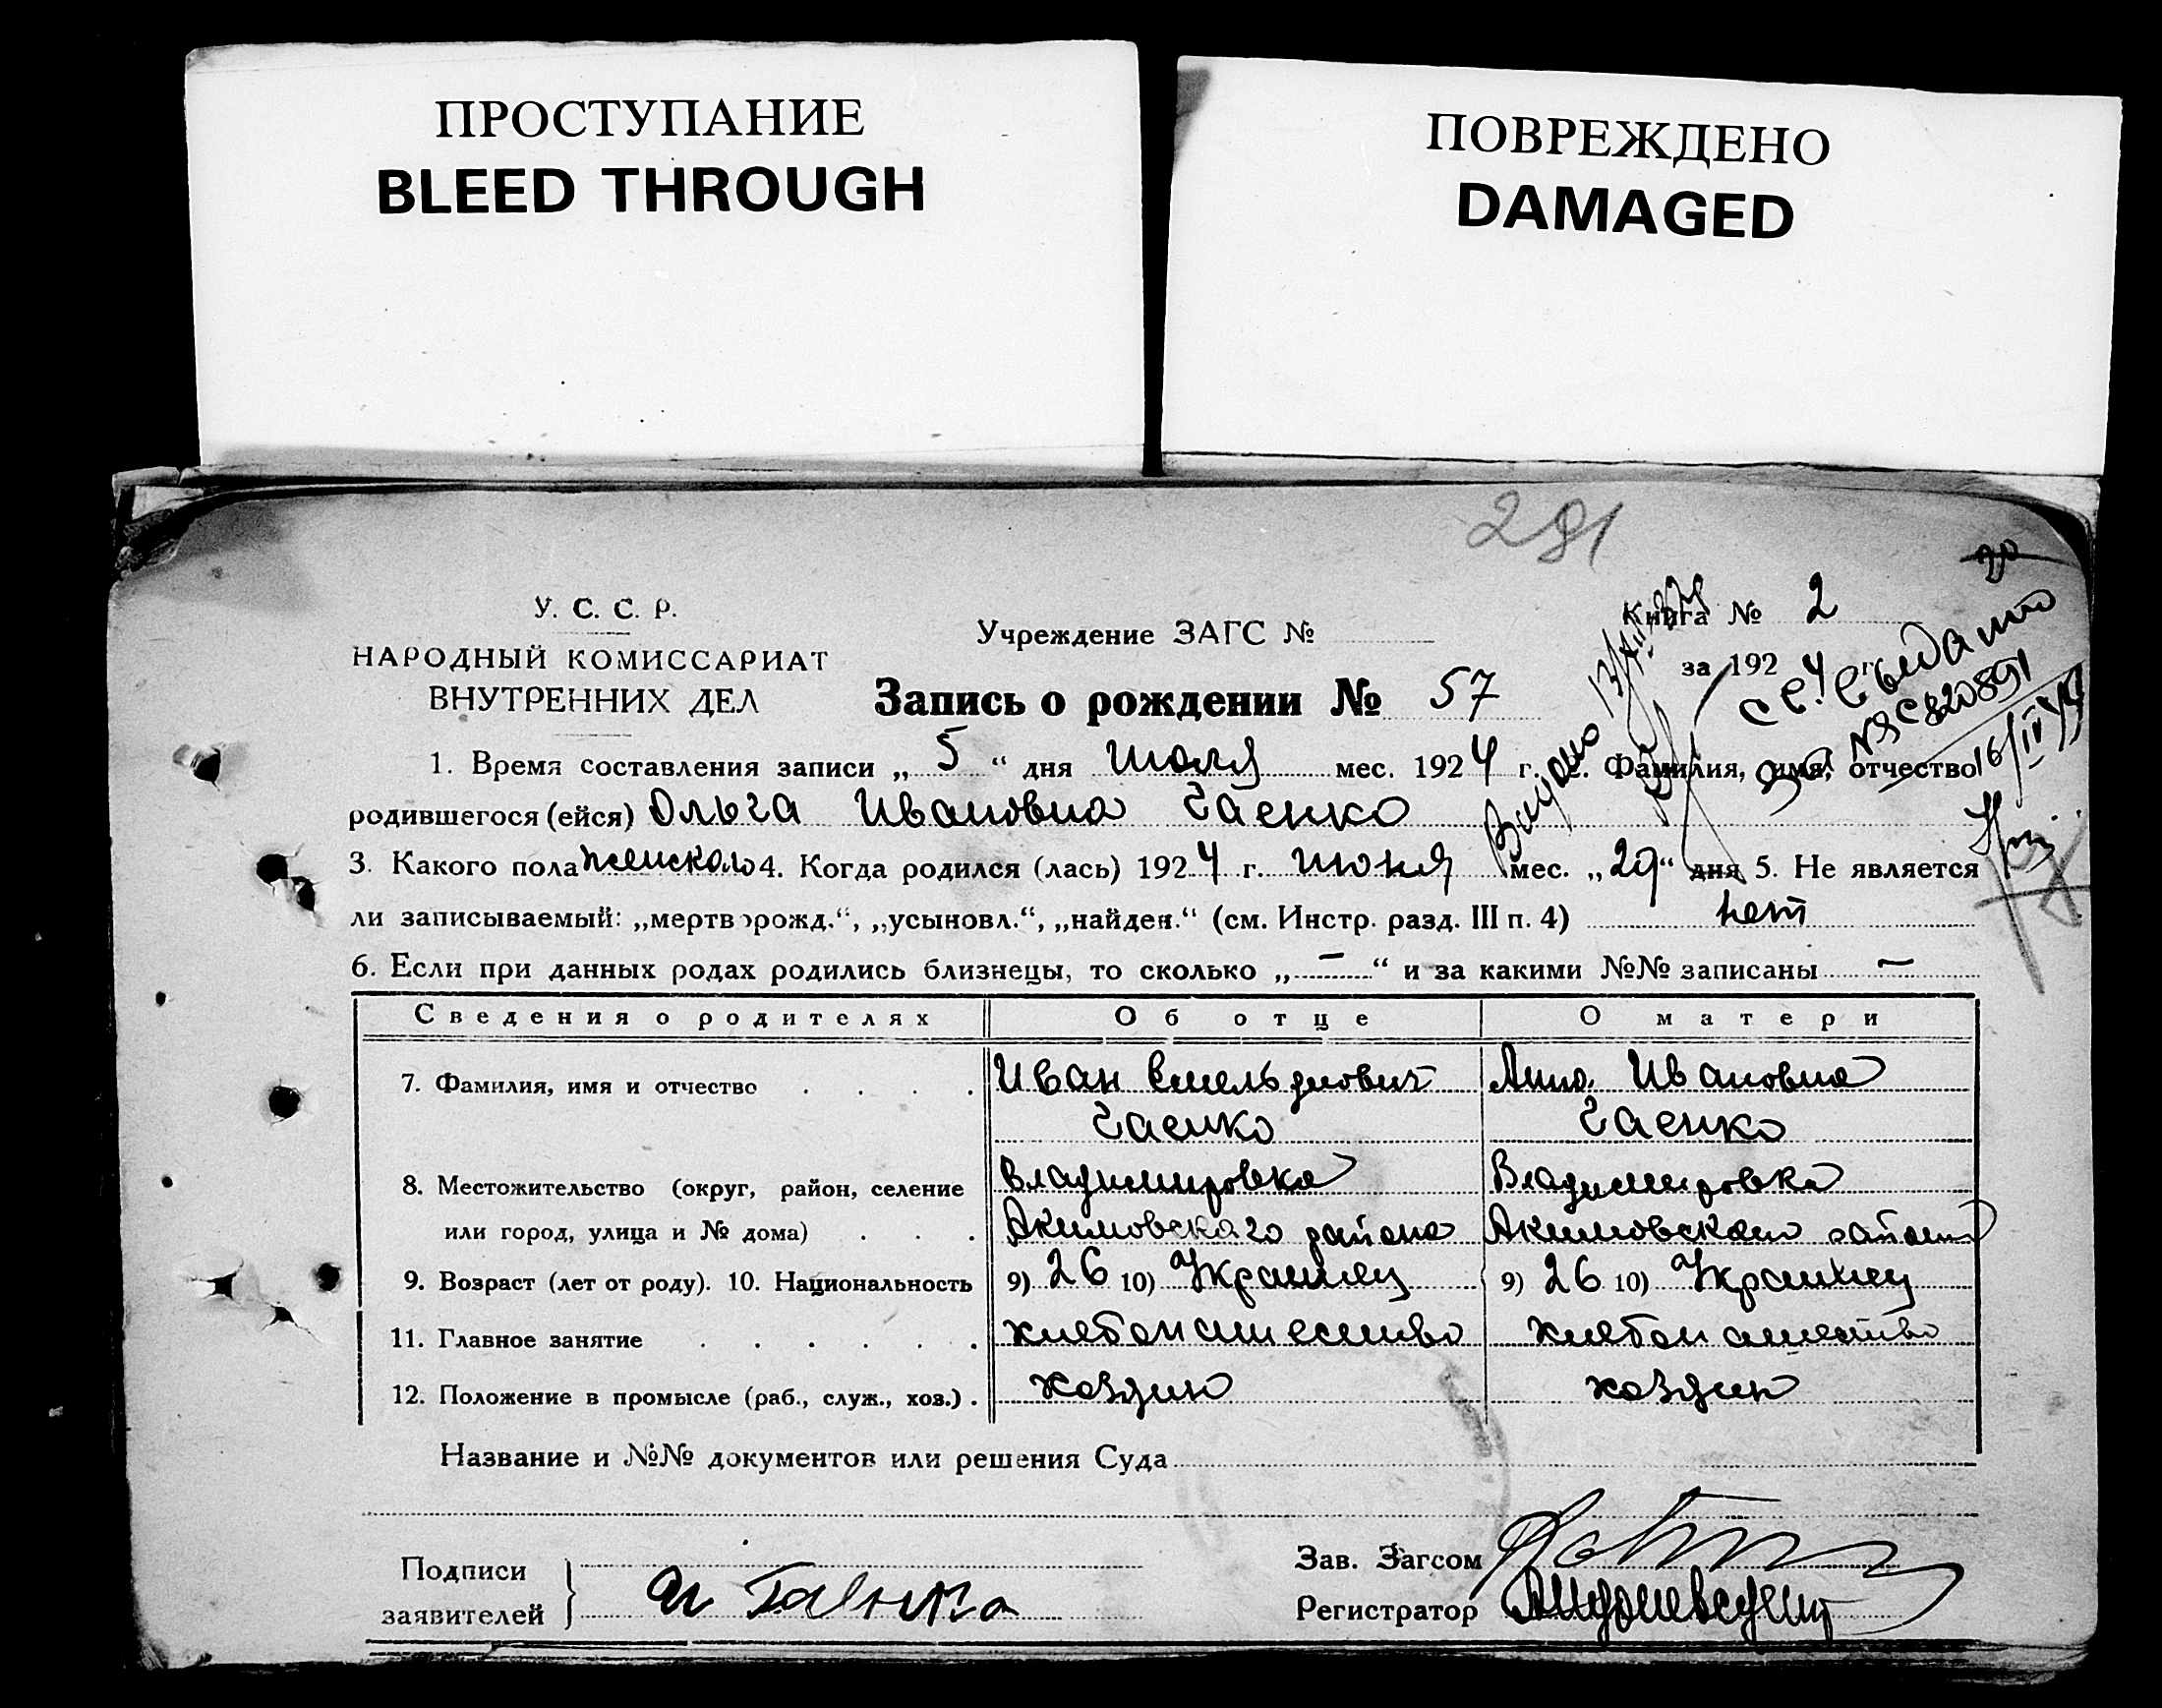 ПРОСТУПАНИЕ
BLEED THROUGH
ПОВРЕЖДЕНО
DAMAGED
281
20
У. С. С. Р.
НАРОДНЫЙ КОМИССАРИАТ
ВНУТРЕННИХ ДЕЛ
Учреждение ЗАГС №
Книга № 2
за 1924 г.
Запись о рождении № 57
Выдано
№ 820891
1. Время составления записи „ 5 “ дня июля мес. 1924 г. 2. Фамилия, имя, отчество
родившегося (ейся) Ольга Ивановна Гаенко
3. Какого пола женского 4. Когда родился (лась) 1924 г. июня мес. „29“ дня 5. Не является
ли записываемый: „мертворожд.“, „усыновл.“, „найден.“ (см. Инстр. разд. III п. 4) нет
6. Если при данных родах родились близнецы, то сколько „ — “ и за какими №№ записаны —
Сведения о родителях Об отце О матери
7. Фамилия, имя и отчество . . . . Иван Емельянович Анна Ивановна
Гаенко Гаенко
8. Местожительство (округ, район, селение Владимировка Владимировка
или город, улица и № дома) . . . Акимовского района Акимовского района
9. Возраст (лет от роду). 10. Национальность 9) 26 10) Украинец 9) 26 10) Украинец
11. Главное занятие . . . . . . хлебопашество хлебопашество
12. Положение в промысле (раб., служ., хоз.) . хозяин хозяин
Название и №№ документов или решения Суда
Подписи
заявителей
И Гаенко
Зав. Загсом
Регистратор